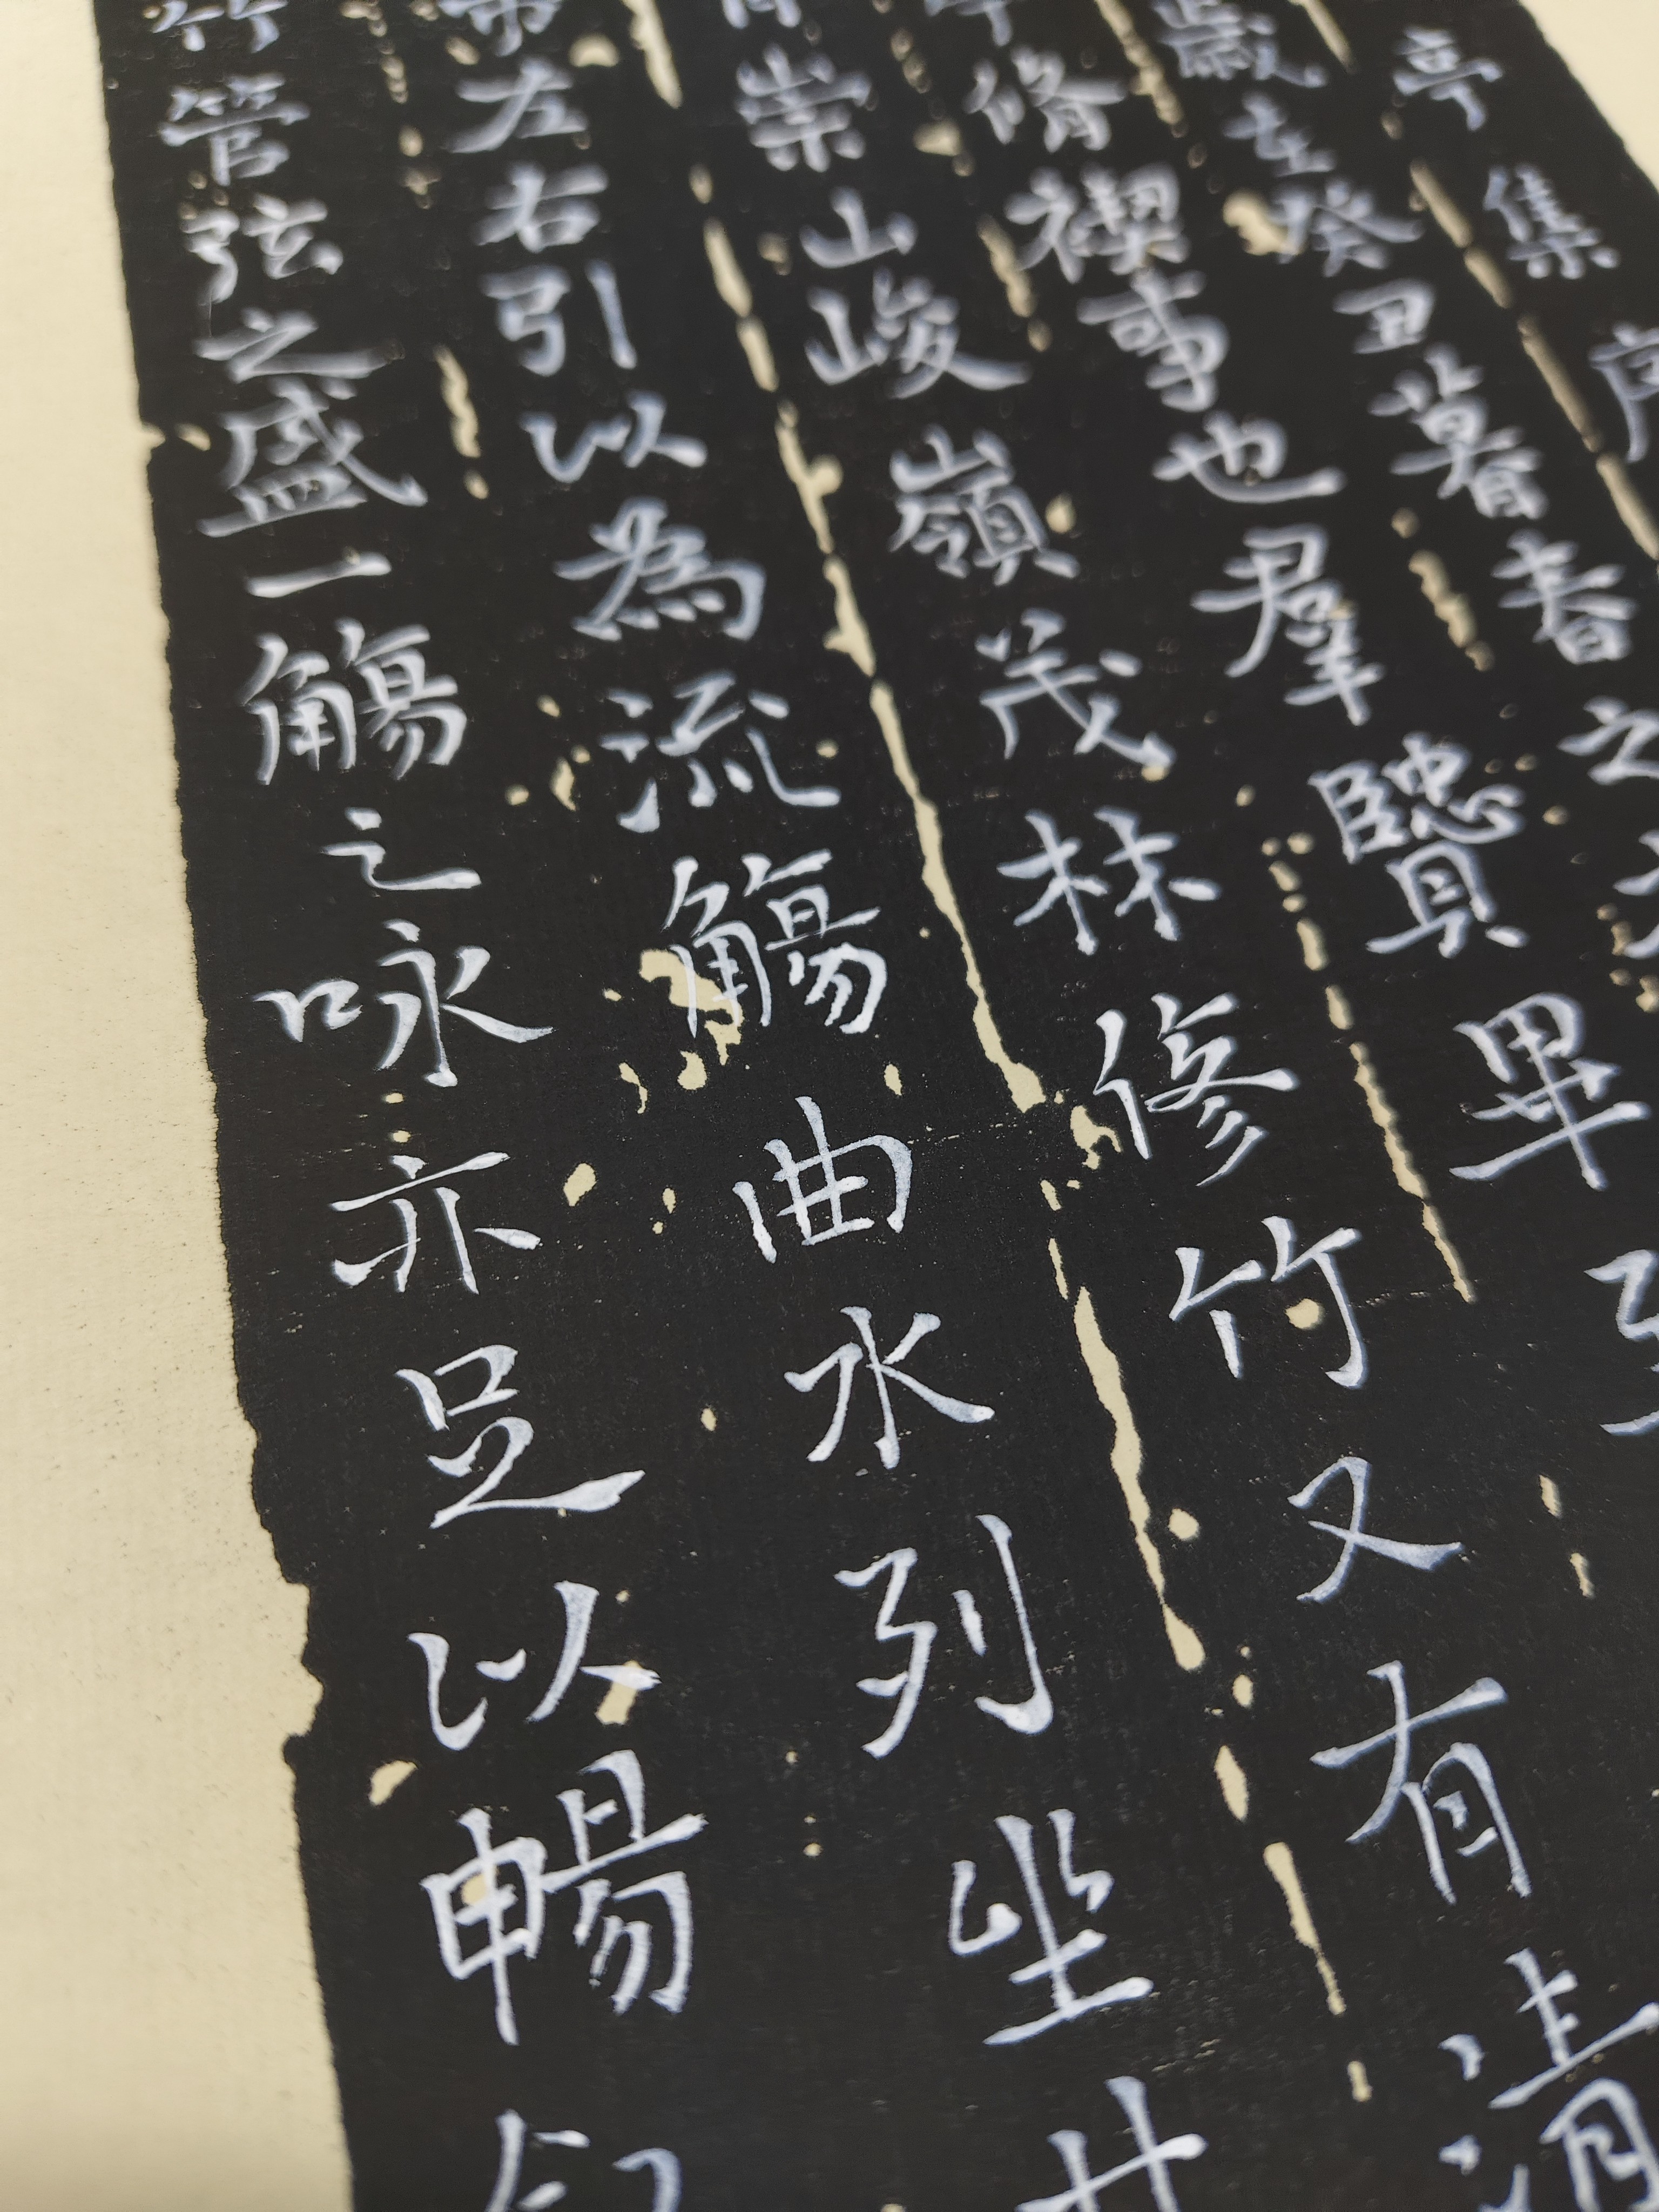 亭集
歲在癸丑暮春之
脩禊事也羣賢畢至
崇山峻嶺茂林修竹又有清
左右引以為流觴曲水列坐
竹管弦之盛一觴之咏亦足以暢